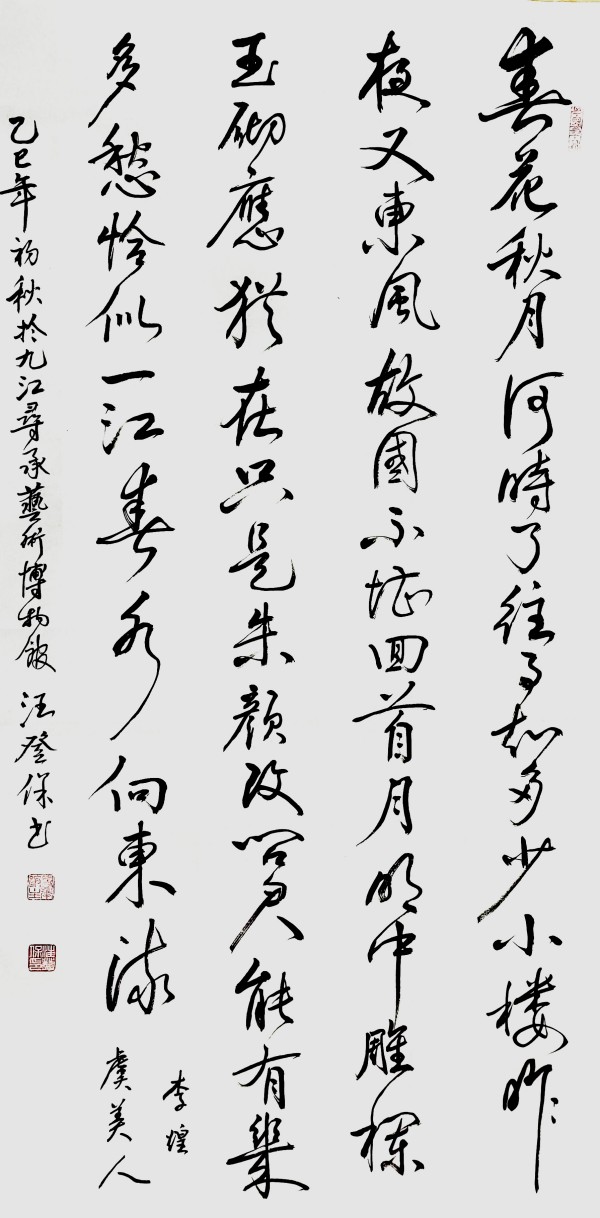 春花秋月何時了往事知多少小樓昨
夜又東風故國不堪回首月明中雕欄
玉砌應猶在只是朱顔改問君能有幾
多愁恰似一江春水向東流
李煜
虞美人
乙巳年初秋於九江尋承藝術博物館汪登保书